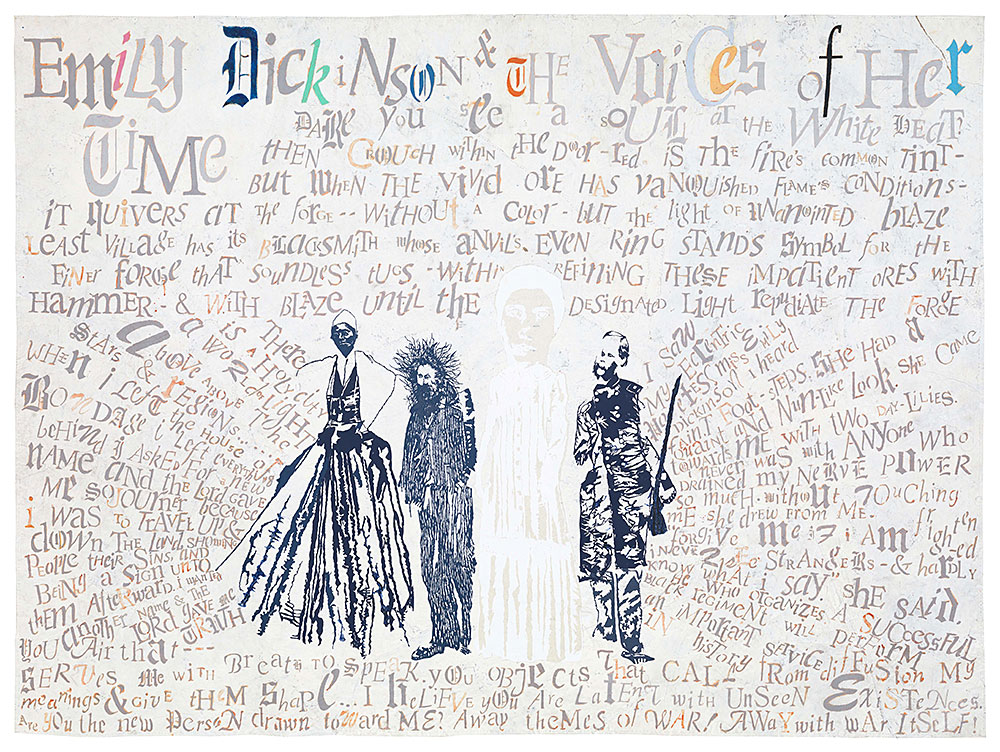 Emily Dickinson & THE Voices of Her
TIME
DARE you see a soul AT THE White HEAT?
THEN CROUCH within the Door - red is The fire's common Tint -
But when THE vivid ore HAS VANQUISHED flame's conditions -
it quivers at the forge -- without a color - but the light of unanointed blaze
Least Village has its BLACKSMITH whose anvil's Even Ring STANDS Symbol for the
Finer forge that soundless tugs - within REFINING THESE impatient ores with
Hammer & with BLAZE until the DESIGNATED Light repudiate THE FORGE
THERE is a Holy city
a world of Light
ABOVE
Above THE
STARS & regions...
WHEN i Left the HOUSE of
BONEDAGE i Left EVERYTHING
behind i Asked For a new
NAME and the Lord gave
ME SOJOURNER because
i was TO TRAVEL UP &
down THE land SHOWING
PEOPLE their SINS AND
BEING a SIGN UNTO
them Afterward i WANTED
another Name & THE
LORD GAVE ME
TRUTH
i saw
EMILY
i heard
FOOT-STEPS. SHE HAD a
and Nun-Like Look she came
towards ME WITH TWO DAY-LILIES.
i never was with ANYONE Who
DRAINED my NERVE POWER
so much. without TOUCHING
ME she drew from ME.
forgive me if i am frightened
i never see STRANGERS - & hardly
know what i say" she said.
WHO ORGANIZES A SUCCESSFUL
Black regiment WILL PERFORM
AN important SERVICE
IN history
YOU Air that ---
SERVES Me with Breath TO SPEAK. you OBJECTS that CALL from diffusion MY
meanings & give them shape... I BELIEVE you Are Latent with UnSeen ExisTences.
Are you the new Person drawn toward ME? Away themes of WAR! AWay with wAr ItSeLF!